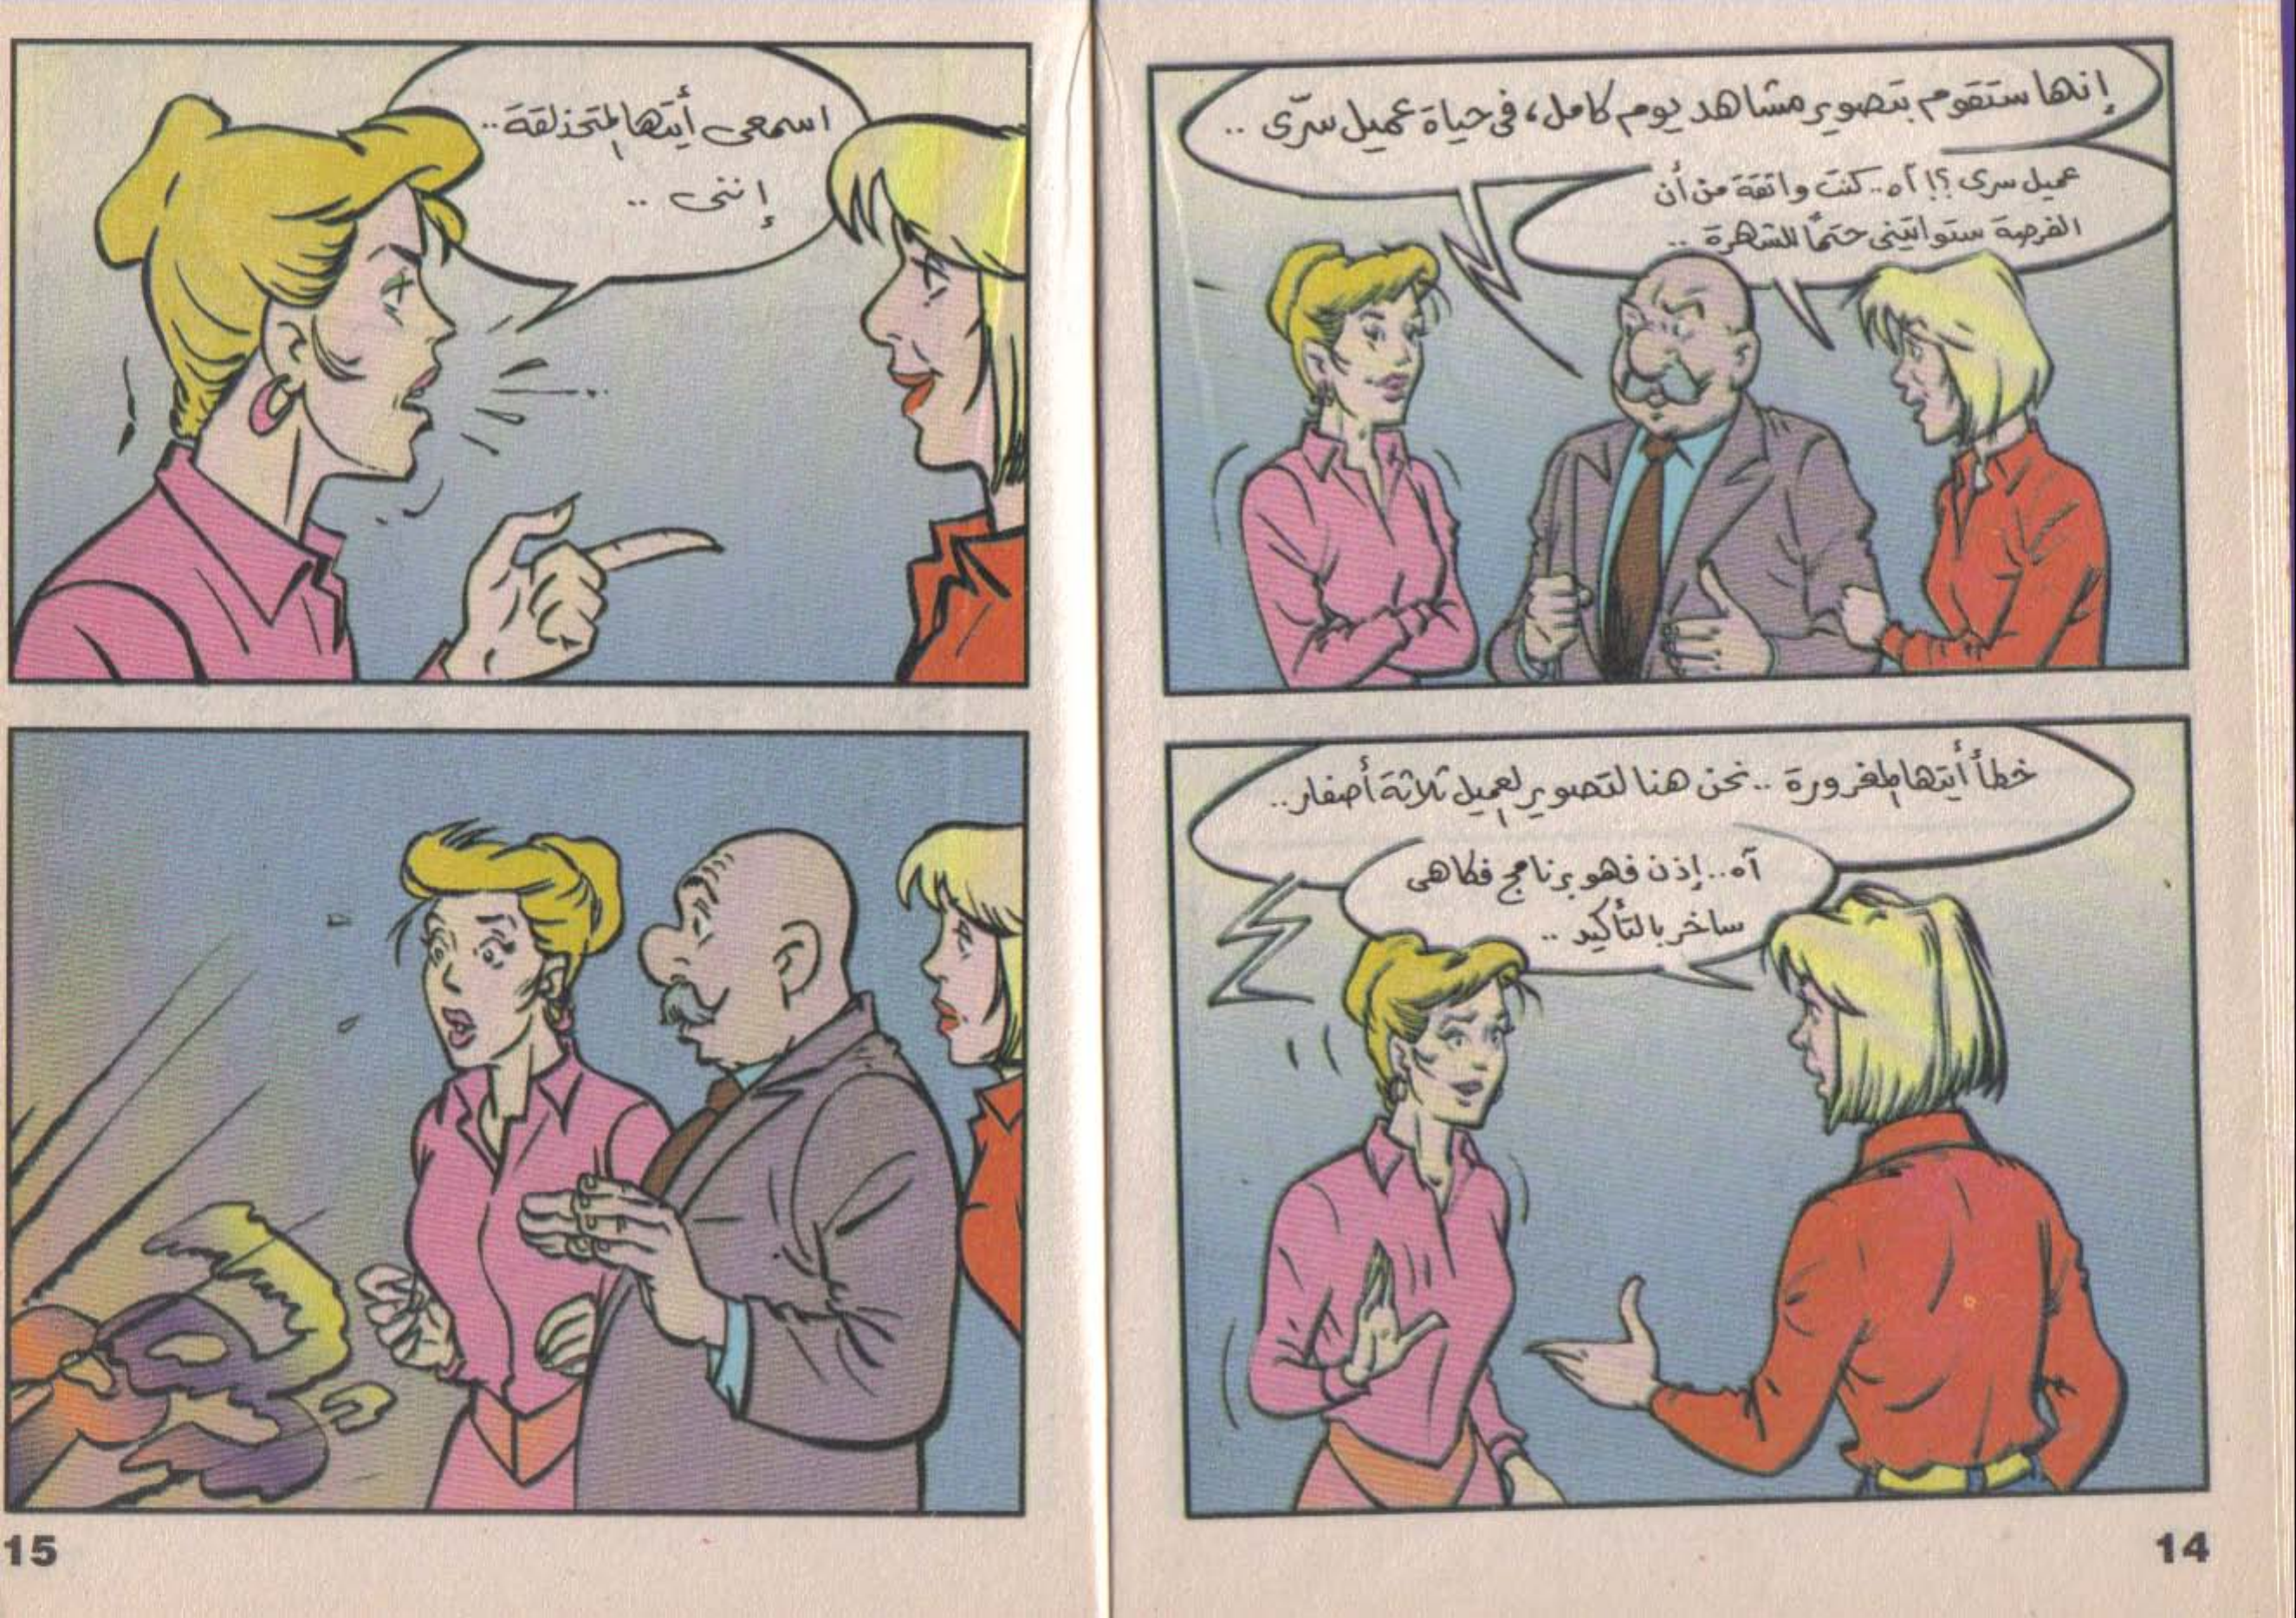 إنها ستقوم بتصوير مشاهد يوم كامل، فى حياة عميل سرّى ..
عميل سرى ؟! آه .. كنت واثقة من أن
الفرصة ستواتينى حتمًا للشهرة ..
خطأ أيتها المغرورة .. نحن هنا لتصوير العميل ثلاثة أصفار ..
آه .. إذن فهو برنامج فكاهى
ساخر بالتأكيد ..
14
اسمعى أيتها المتحذلقة ..
إننى ..
15